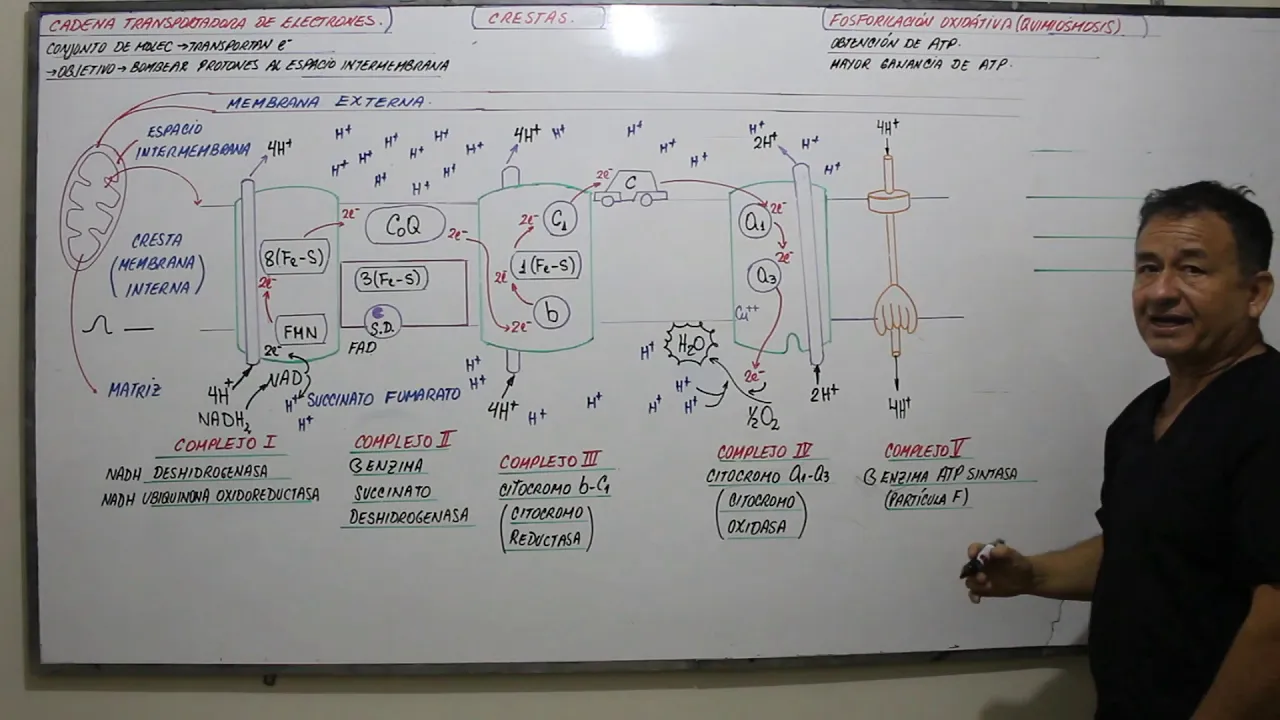 CADENA TRANSPORTADORA DE ELECTRONES.
CONJUNTO DE MOLEC → TRANSPORTAN e⁻
→ OBJETIVO → BOMBEAR PROTONES AL ESPACIO INTERMEMBRANA
CRESTAS.
FOSFORILACIÓN OXIDÁTIVA (QUIMIOSMOSIS)
OBTENCIÓN DE ATP.
MAYOR GANANCIA DE ATP.
MEMBRANA EXTERNA.
ESPACIO
INTERMEMBRANA
4H⁺
H⁺ H⁺ H⁺ H⁺ H⁺ H⁺ H⁺ H⁺ H⁺
4H⁺ H⁺
H⁺ H⁺ H⁺
H⁺
2H⁺ H⁺ H⁺
4H⁺
CRESTA
(MEMBRANA
INTERNA)
MATRIZ
8(Fe-S)
2e⁻
FMN
2e⁻
2e⁻
CoQ
2e⁻
3(Fe-S)
S.D.
FAD
C₁
2e⁻
1(Fe-S)
2e⁻
b
2e⁻
2e⁻
C
a₁
2e⁻
2e⁻
a₃
Cu⁺⁺
2e⁻
H₂O
H⁺
H⁺
H⁺ H⁺
½O₂
2H⁺
4H⁺
4H⁺
NADH₂
NAD
H⁺
H⁺
SUCCINATO FUMARATO
H⁺
H⁺
4H⁺ H⁺ H⁺
COMPLEJO I
NADH DESHIDROGENASA
NADH UBIQUINONA OXIDOREDUCTASA
COMPLEJO II
ENZIMA
SUCCINATO
DESHIDROGENASA
COMPLEJO III
CITOCROMO b-C₁
(CITOCROMO
REDUCTASA)
COMPLEJO IV
CITOCROMO a₁-a₃
(CITOCROMO
OXIDASA)
COMPLEJO V
ENZIMA ATP SINTASA
(PARTÍCULA F)